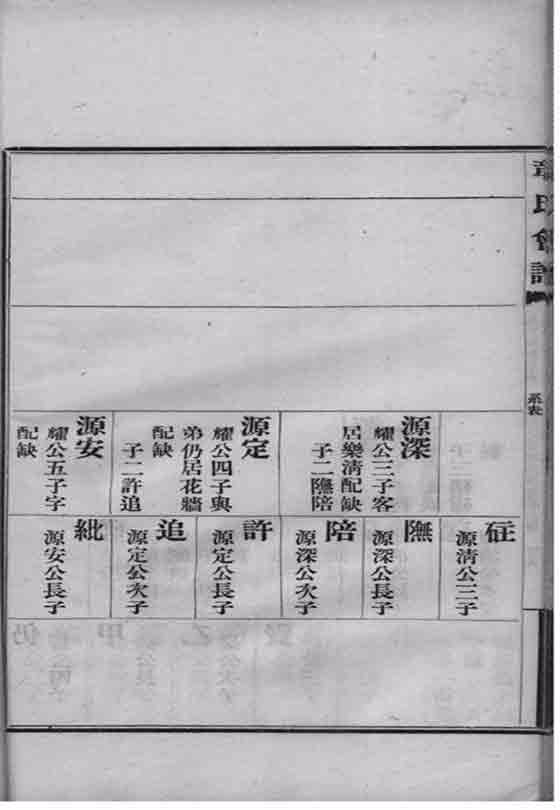 章氏會譜
系表
源深
耀公三子客
居樂清配缺
子二憮陪
源定
耀公四子與
弟仍居花牆
配缺
子二許追
源安
耀公五子字
配缺
砡
源清公三子
憮
源深公長子
陪
源深公次子
許
源定公長子
追
源定公次子
紕
源安公長子